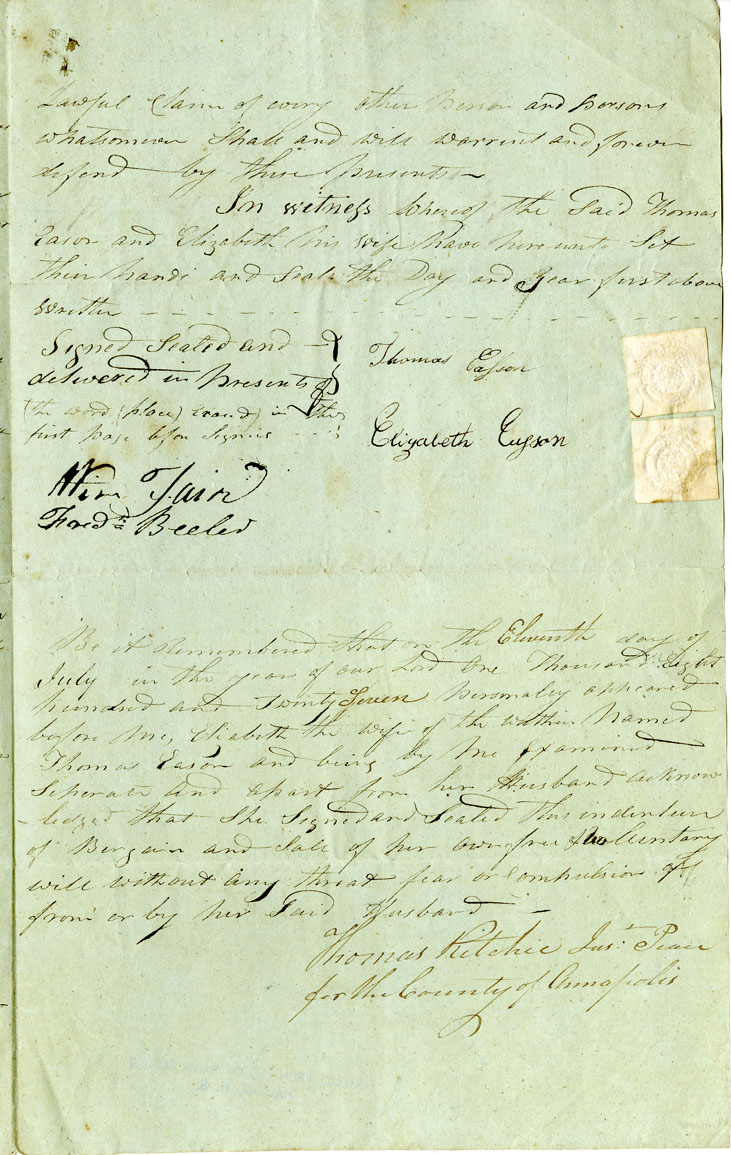 Lawful Claim of every other Person and Persons
whatsomever Shall and will warrint and forever
defend by these presents
In witness Whereof the Said Thomas
Eason and Elizabeth his wife have here unto Set
their hands and Seals the Day and Year first above
written
Signed Sealed and
delivered in presents of
(the word (place) erased) in the
first page before Signing
Thomas Easson
Elizabeth Eason
Wm
Fredk Beeler
Be it Remembered that on the Eleventh day of
July in the year of our Lord One Thousand Eight
hundred and Twenty Seven personaley appeared
before me, Elizabeth the wife of the within Named
Thomas Eason and being by Me Examined
Seperate and apart from her Husband acknow
-ledged that She Signed and Sealed this indenture
of Bergain and Sale of her own free & voluntary
will without any threat fear or compulsion of
from or by her Said Husband
Thomas Ritchie Jus.t Peace
for the County of Annapolis